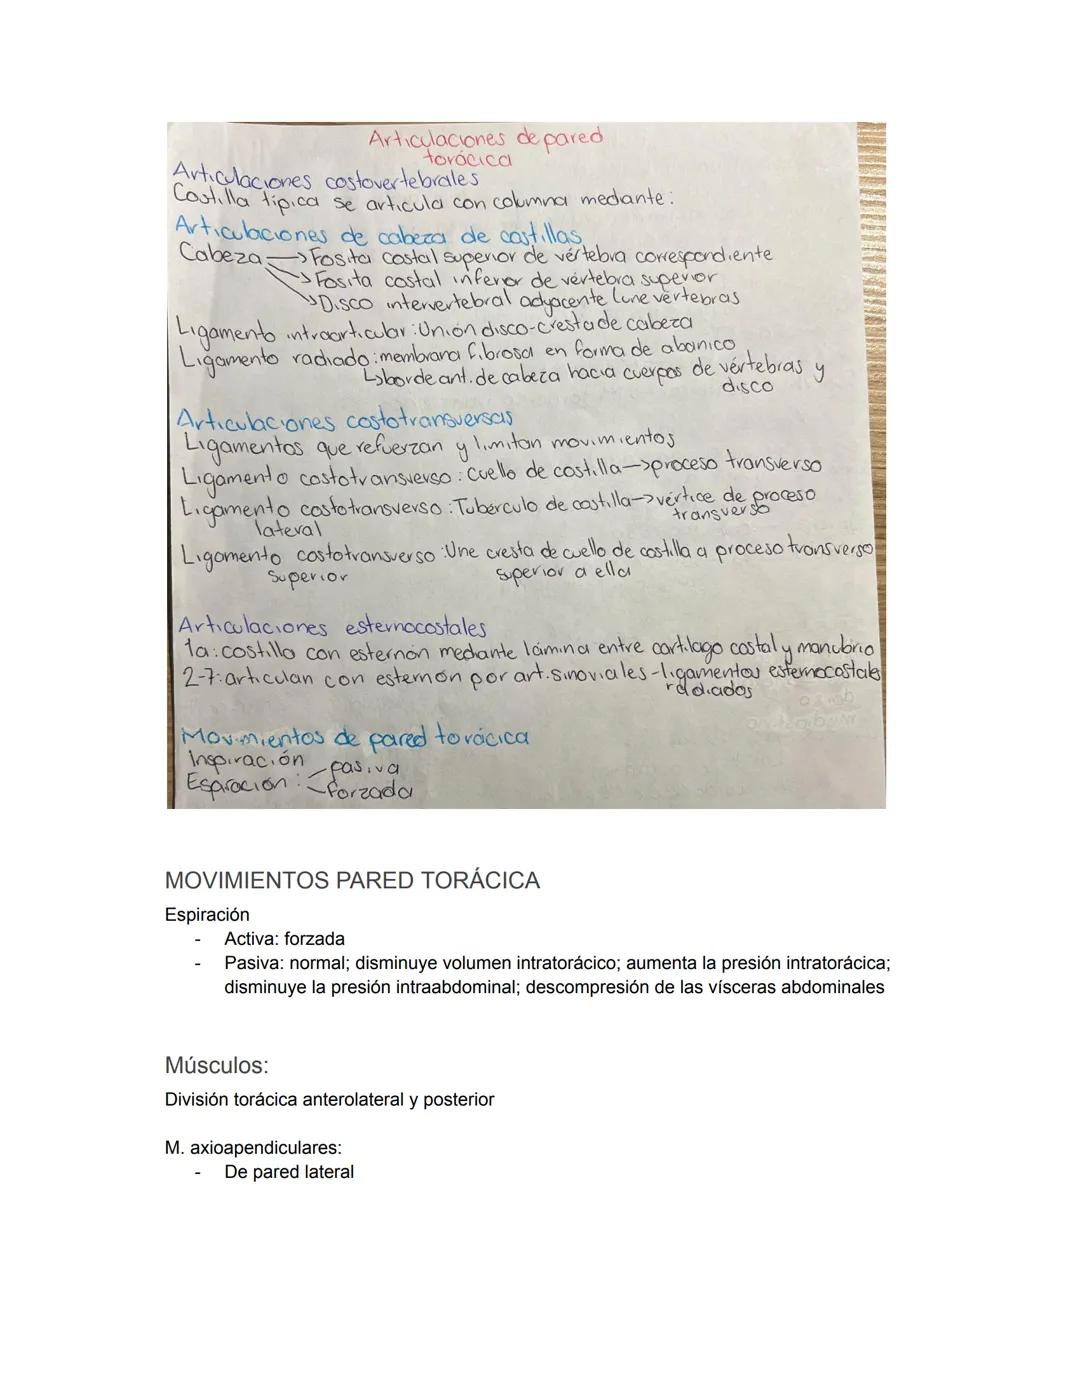 Articulaciones de pared
torácica
Articulaciones costovertebrales
Costilla típica se articula con columna mediante:
Articulaciones de cabeza de costillas
Cabeza → Fosita costal superior de vértebra correspondiente
→ Fosita costal inferior de vértebra superior
→ Disco intervertebral adyacente (une vértebras
Ligamento intraarticular: Unión disco-cresta de cabeza
Ligamento radiado: membrana fibrosa en forma de abanico
↳ borde ant. de cabeza hacia cuerpos de vértebras y
disco
Articulaciones costotransversas
Ligamentos que refuerzan y limitan movimientos
Ligamento costotransverso: Cuello de costilla → proceso transverso
Ligamento costotransverso: Tubérculo de costilla → vértice de proceso
lateral transverso
Ligamento costotransverso: Une cresta de cuello de costilla a proceso transverso
superior superior a ella
Articulaciones esternocostales
1a: costilla con esternón mediante lámina entre cartílago costal y manubrio
2-7: articulan con esternón por art. sinoviales - ligamentos esternocostales
radiados
Movimientos de pared torácica
Inspiración
Espiración: pasiva
forzada
MOVIMIENTOS PARED TORÁCICA
Espiración
- Activa: forzada
- Pasiva: normal; disminuye volumen intratorácico; aumenta la presión intratorácica;
disminuye la presión intraabdominal; descompresión de las vísceras abdominales
Músculos:
División torácica anterolateral y posterior
M. axioapendiculares:
- De pared lateral